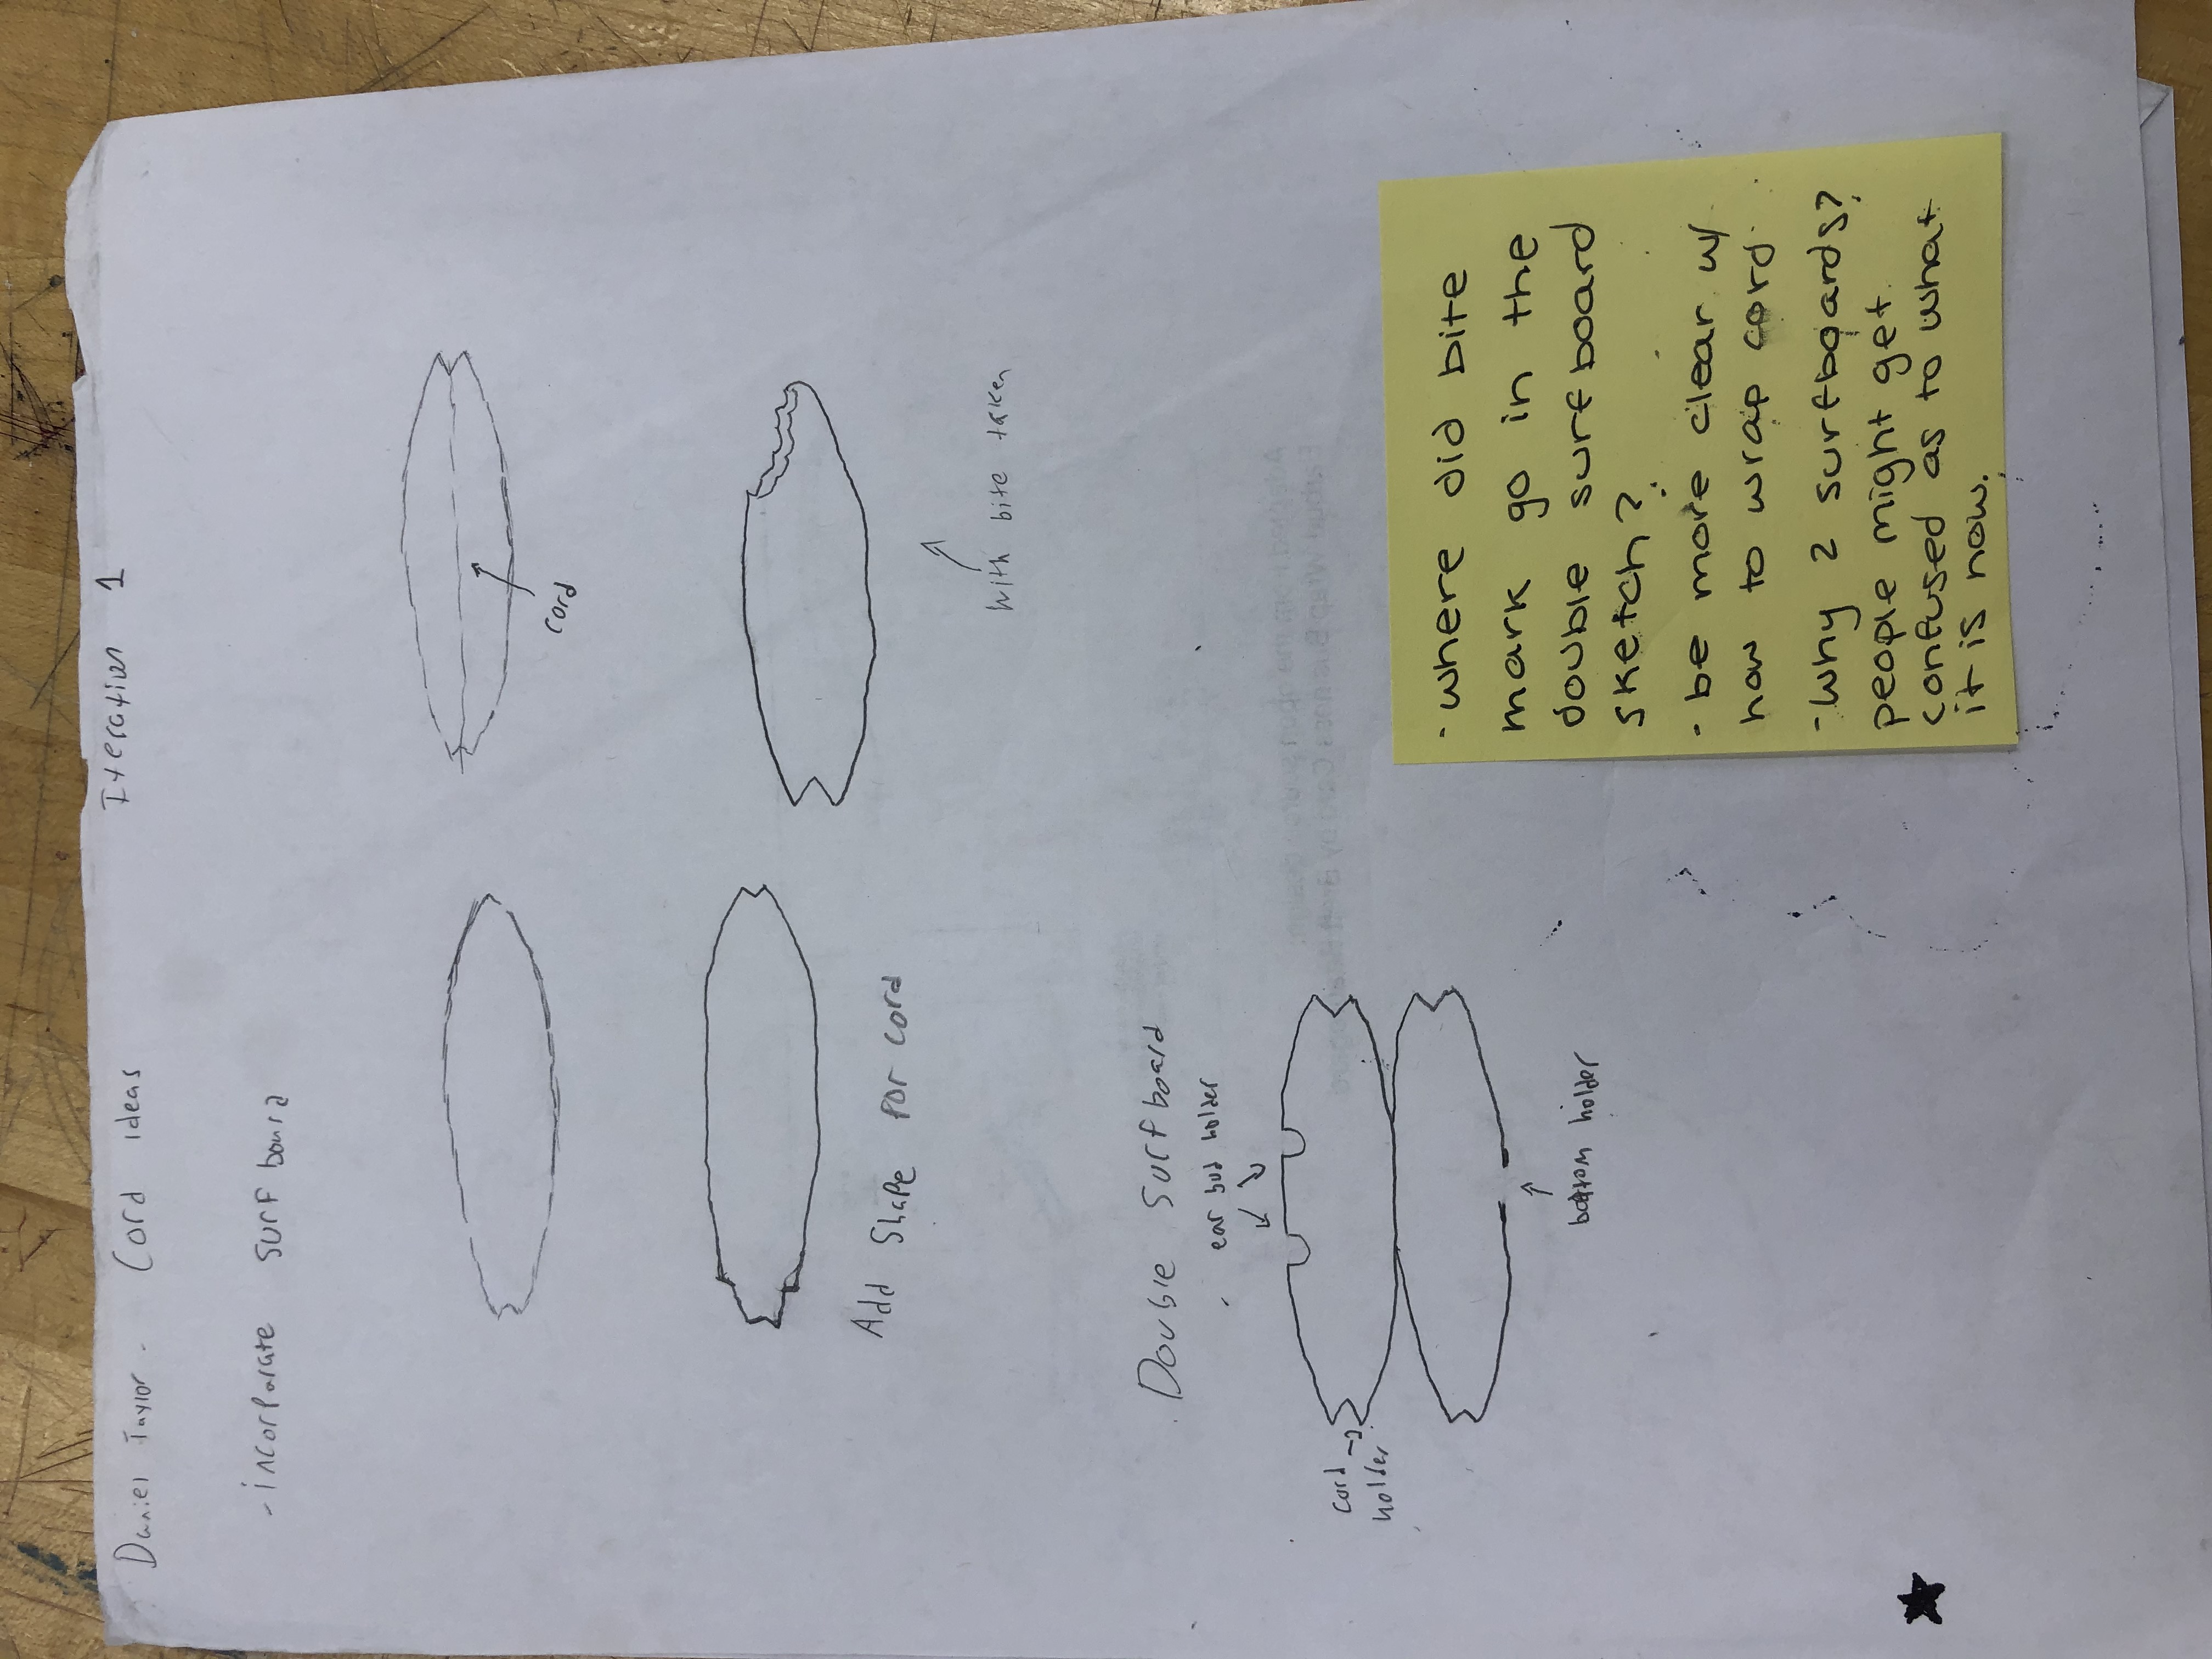 Daniel Taylor. Cord ideas Iteration 1
- incorporate surf board
cord
Add Shape for cord
with bite taken
Double Surfboard
- ear bud holder
cord
holder
bottom holder
- where did bite
mark go in the
double surfboard
sketch?
- be more clear w/
how to wrap cord.
- Why 2 surfboards?
people might get
confused as to what
it is now.
Adapted from the open source design:
Earbud Wrap Business Card by Brett